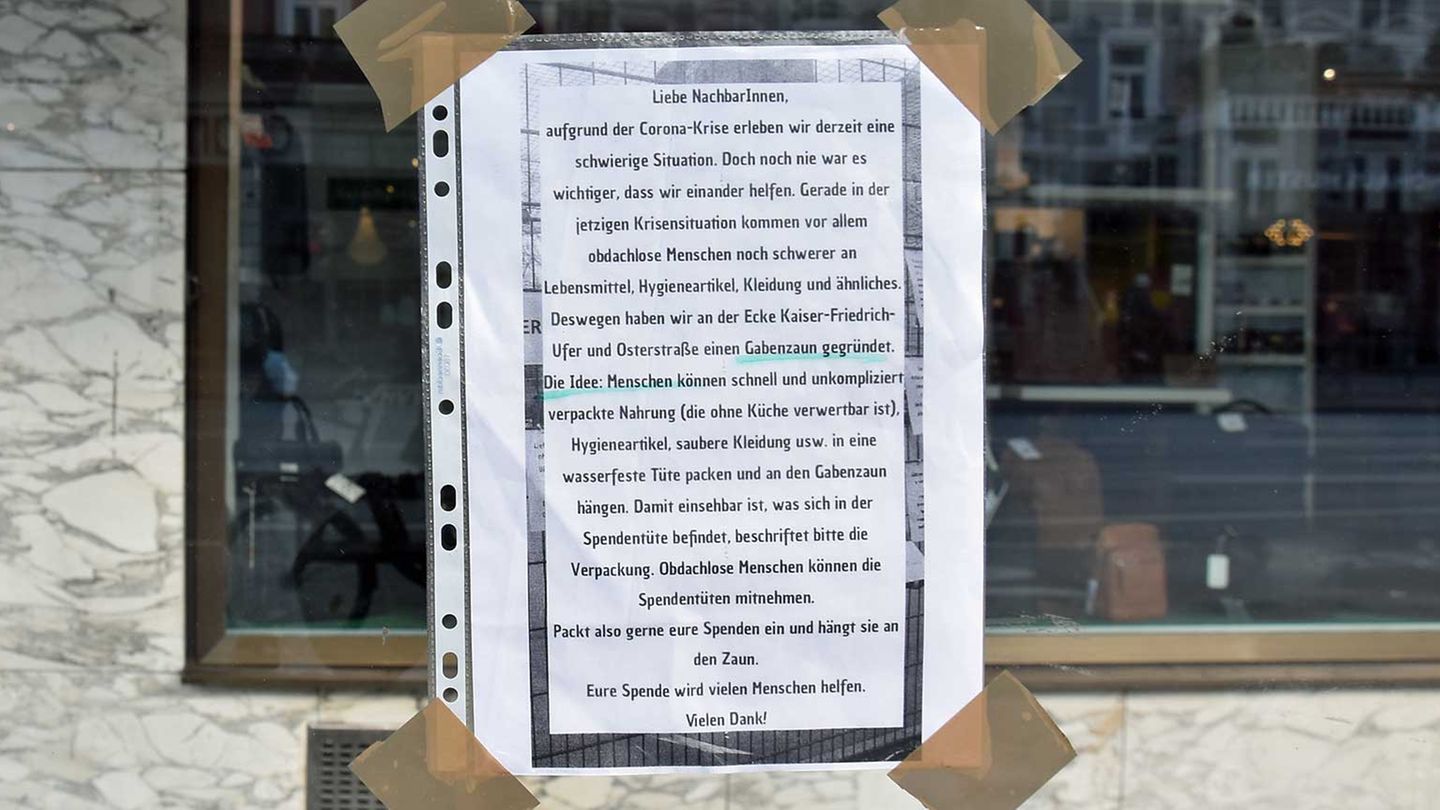 Liebe NachbarInnen,
aufgrund der Corona-Krise erleben wir derzeit eine
schwierige Situation. Doch noch nie war es
wichtiger, dass wir einander helfen. Gerade in der
jetzigen Krisensituation kommen vor allem
obdachlose Menschen noch schwerer an
Lebensmittel, Hygieneartikel, Kleidung und ähnliches.
Deswegen haben wir an der Ecke Kaiser-Friedrich-
Ufer und Osterstraße einen Gabenzaun gegründet.
Die Idee: Menschen können schnell und unkompliziert
verpackte Nahrung (die ohne Küche verwertbar ist),
Hygieneartikel, saubere Kleidung usw. in eine
wasserfeste Tüte packen und an den Gabenzaun
hängen. Damit einsehbar ist, was sich in der
Spendentüte befindet, beschriftet bitte die
Verpackung. Obdachlose Menschen können die
Spendentüten mitnehmen.
Packt also gerne eure Spenden ein und hängt sie an
den Zaun.
Eure Spende wird vielen Menschen helfen.
Vielen Dank!
ER